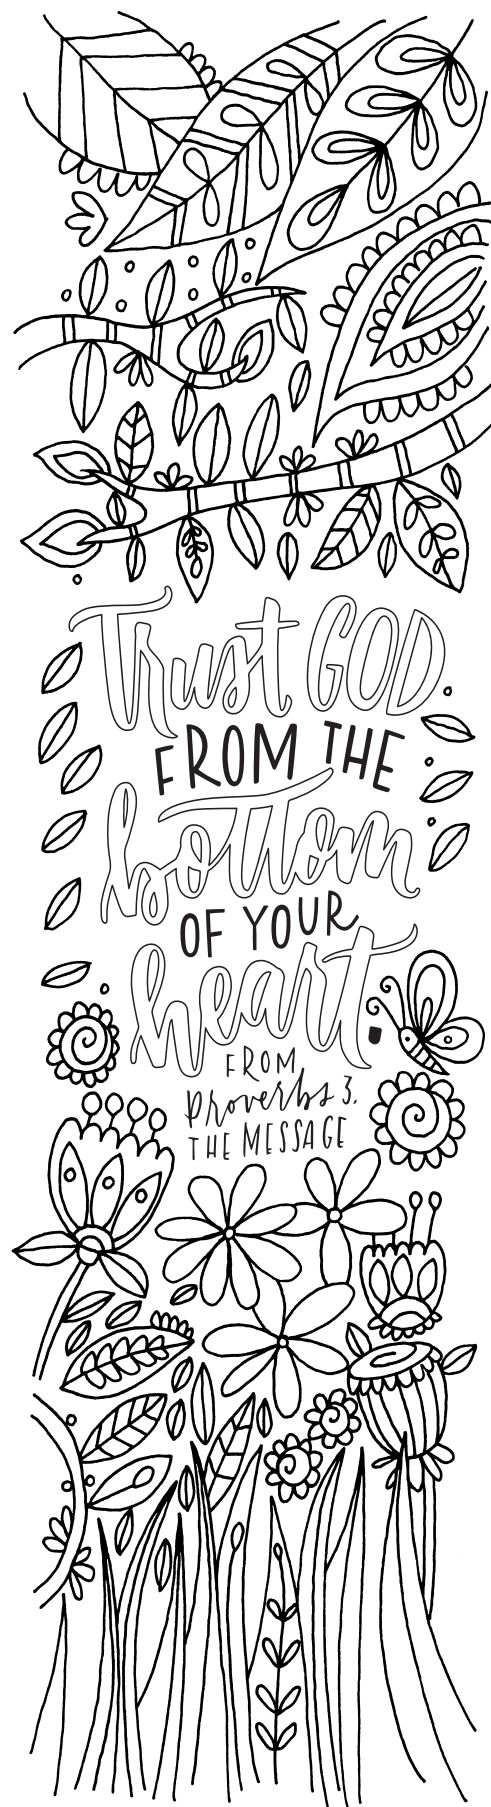 Trust GOD
FROM THE
bottom
OF YOUR
heart.
FROM
Proverbs 3,
THE MESSAGE